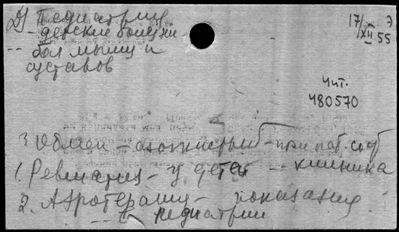 2) Педиатрия
- детские болезни
-- бол. мышц и
суставов
17/XII 55
Э
Чит.
480570
3. Обмен - азотистый - при пат. сост
1. Ревматизм - у детей -- клиника
2. Аэротерапия - показания
-- в педиатрии